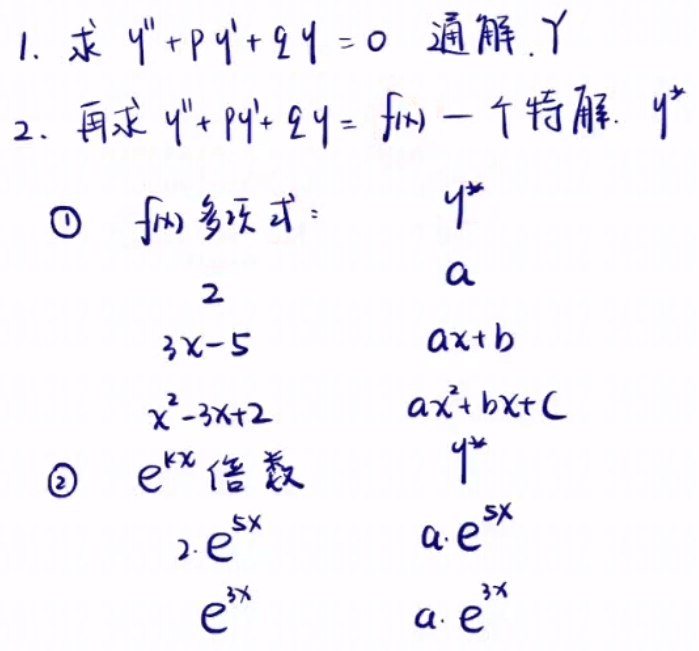 1. 求 y''+py'+qy=0 通解.Y
2. 再求 y''+py'+qy=f(x) 一个特解. y*
① f(x)多项式: y*
2 a
3x-5 ax+b
x²-3x+2 ax²+bx+C
② e^{kx}倍数 y*
2·e^{5x} a·e^{5x}
e^{3x} a·e^{3x}